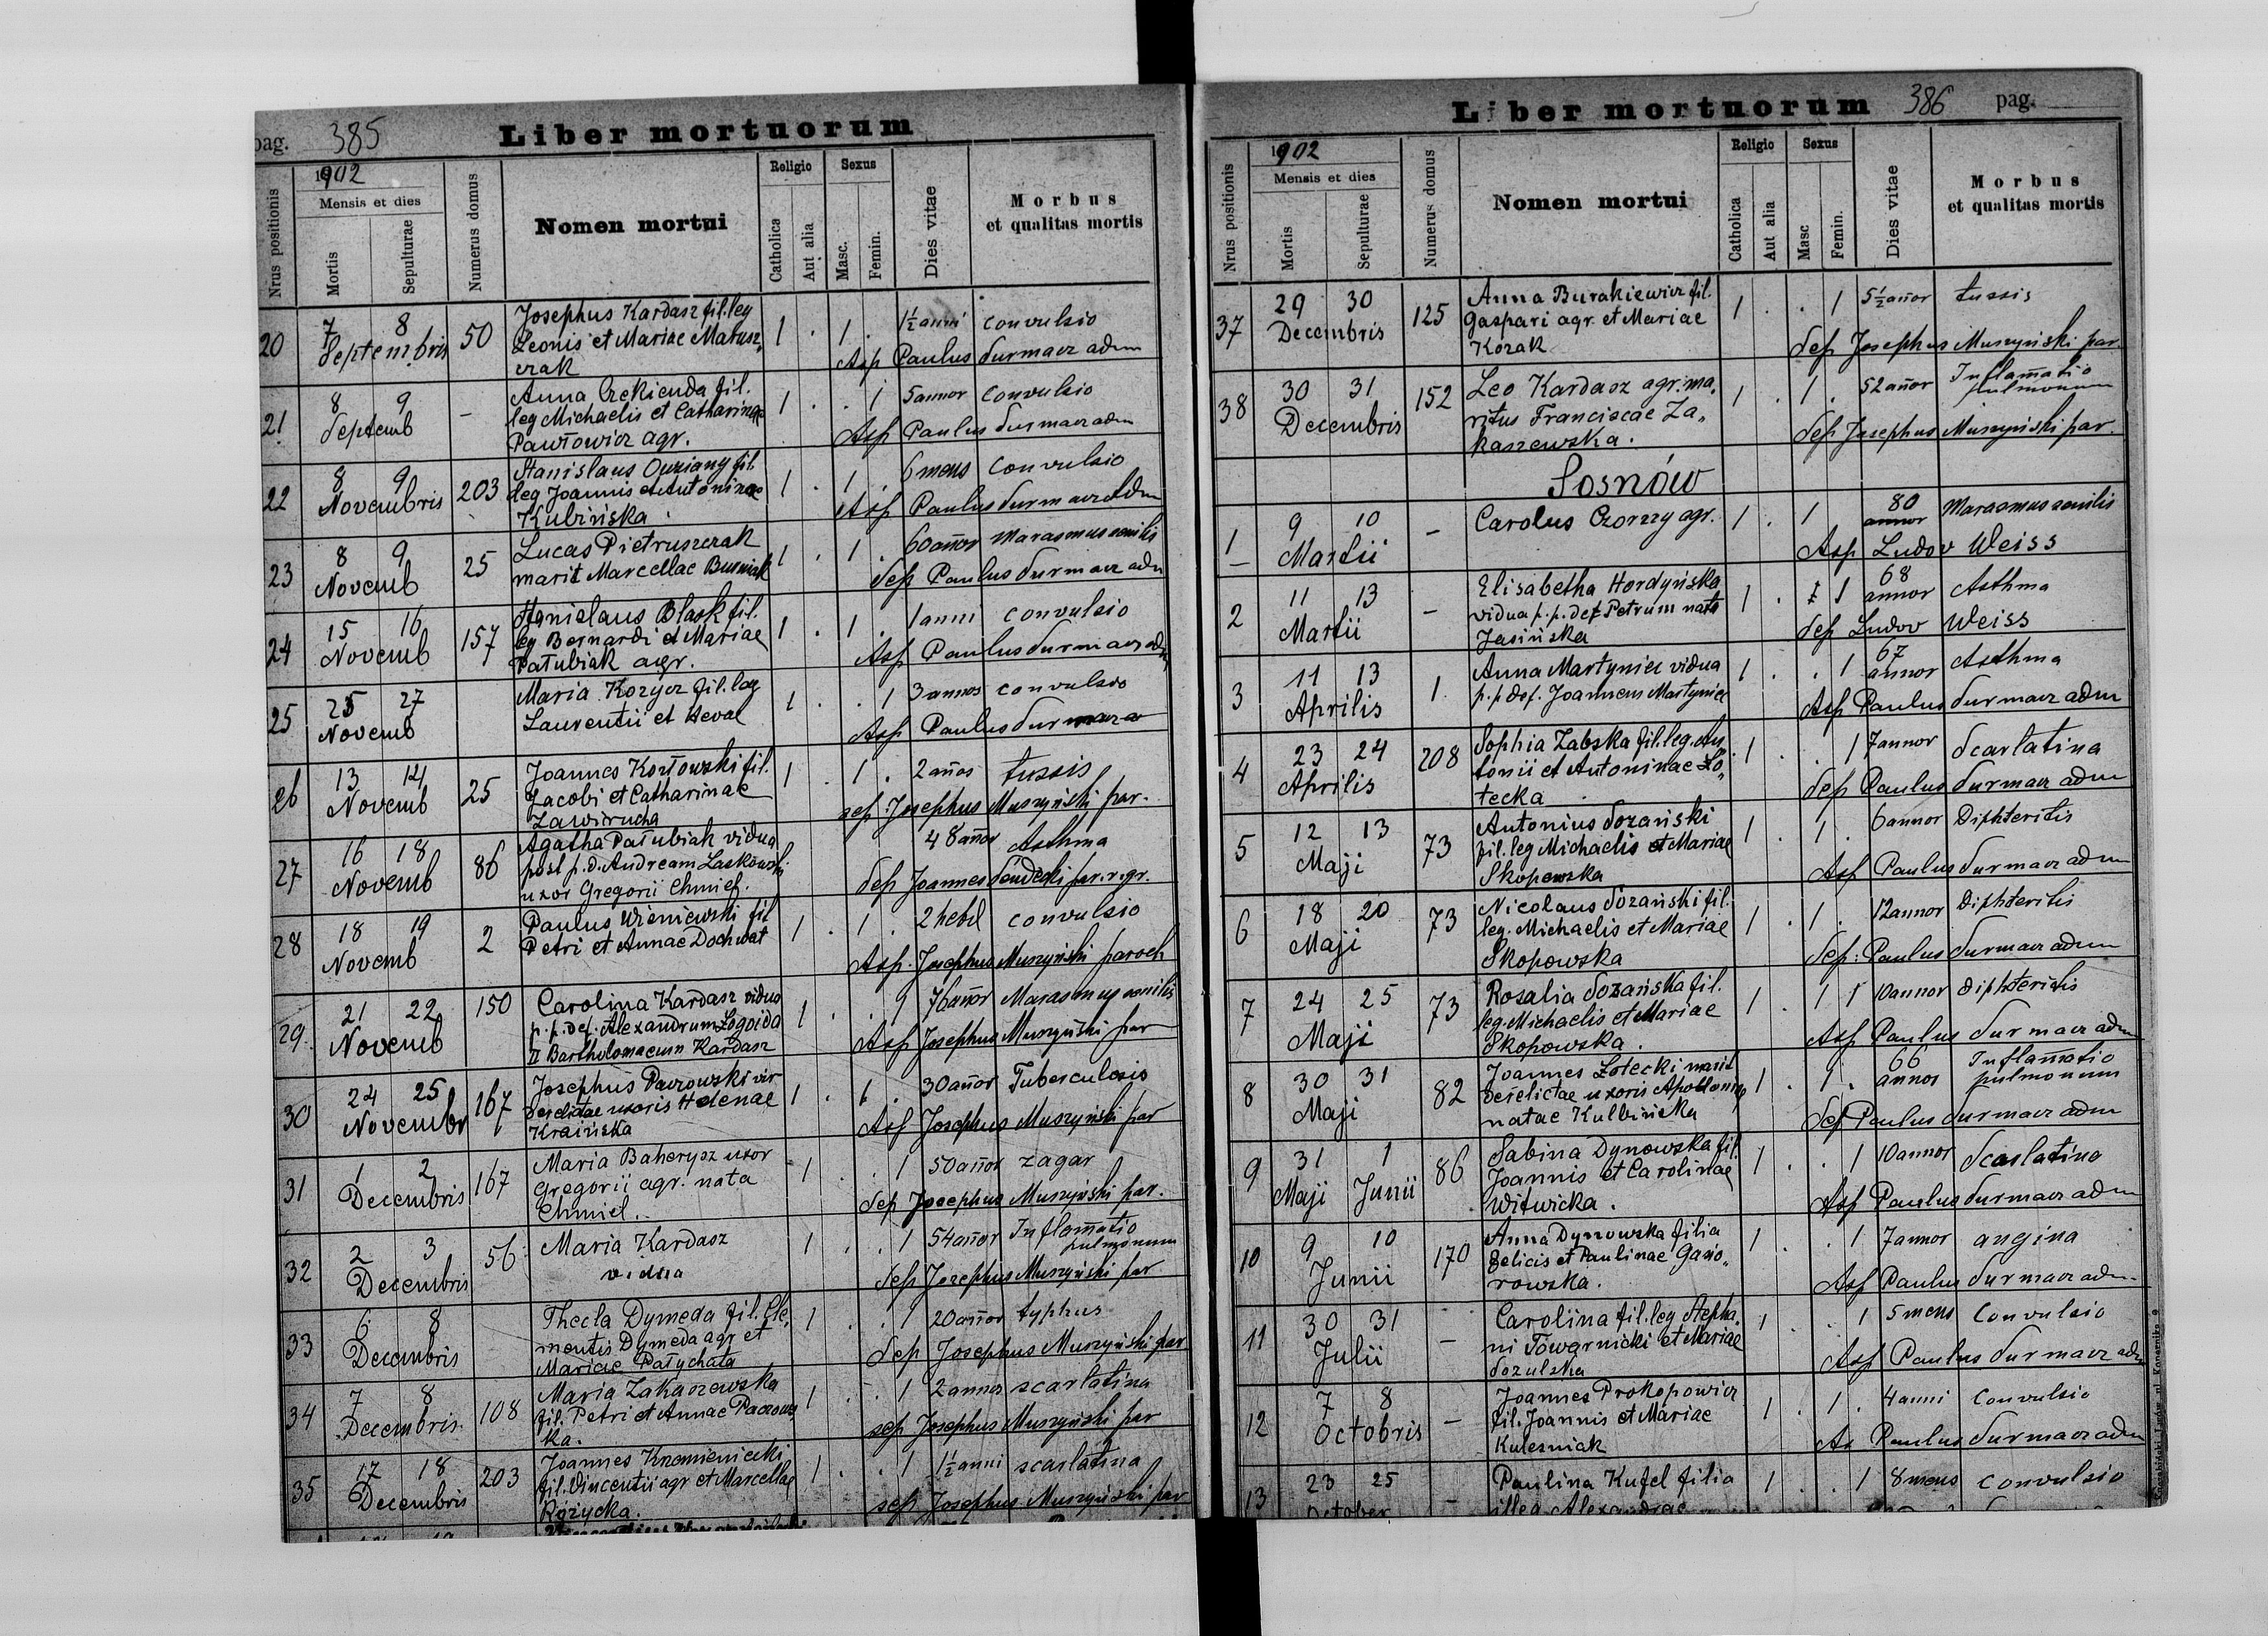 pag. 385 Liber mortuorum
Nrus positionis
1902
Mensis et dies
Mortis
Sepulturae
Numerus domus
Nomen mortui
Religio
Catholica
Aut alia
Sexus
Masc.
Femin.
Dies vitae
Morbus
et qualitas mortis
20 7 8 Septembris 50
Josephus Kardasz fil. leg
Leonis et Mariae Matusz„
czak
1 . 1 . 1½ anni convulsio
Asp Paulus Surmacz adm
21 8 9 Septemb –
Anna Czekienda fil.
leg Michaelis et Catharinae
Pawłowicz agr.
1 . . 1 5 annor convulsio
Asp Paulus Surmacz adm
22 8 9 Novembris 203
Stanislaus fil
leg Joannis et Antoninae
Kubińska
1 . 1 . 6 mens convulsio
Asp Paulus Surmacz adm
23 8 9 Novemb 25
Lucas Pietruszczak
marit Marcellae Busniak
1 . 1 . 60 añor marasmus senilis
Sep Paulus Surmacz adm
24 15 16 Novemb 157
Stanislaus Blask fil.
leg Bernardi et Mariae
Pałubiak agr.
1 . 1 . 1 anni convulsio
Asp Paulus Surmacz adm
25 25 27 Novemb
Maria Kozycz fil. leg
Laurentii et
1 . . 1 3 annos convulsio
Asp Paulus Surmacz a
26 13 14 Novemb 25
Joannes Kozłowski fil.
Jacobi et Catharinae
Zawirucha
1 . 1 . 2 años tussis
sep: Josephus Muszyński par.
27 16 18 Novemb 86
Agatha Pałubiak vidua
post p. d. Andream Laskowski
uxor Gregorii Chmiel.
48 añor Asthma
Sep Joannes Sendecki par. r. gr.
28 18 19 Novemb 2
Paulus Wisniewski fil
Petri et Annae Dochwat
1 . 1 . 2 hebd convulsio
Asp. Josephus Muszyński paroch
29. 21 22 Novemb 150
Carolina Kardasz vidua
p. p. def. Alexandrum Łogoida
II Bartholomaeum Kardasz
1 . . 1 76 añor Marasmus senilis
Asp Josephus Muszyński par
30 24 25 Novembr 167
Josephus Paczowski vir
derelictae uxoris Helenae
Kraińska
1 . 1 . 30 añor Tuberculosis
Asp Josephus Muszyński par
31 1 2 Decembris 167
Maria Baherycz uxor
Gregorii agr. nata
Chmiel.
1 . . 1 50 añor zagar
Sep Josephus Muszyński par.
32 2 3 Decembris 56
Maria Kardasz
vidua
1 . . 1 54 añor Inflamatio
pulmonum
Sep Josephus Muszyński par
33 6 8 Decembris
Thecla Dymeda fil. Cle„
mentis Dymeda agr et
Mariae Patychata
1 . . 1 20 añor typhus
Sep Josephus Muszyński par
34 7 8 Decembris 108
Maria Zakaszewska
fil. Petri et Annae Paczows
ka.
1 . . 1 2 annor scarlatina
sep Josephus Muszyński par
35 17 18 Decembris 203
Joannes Krzemieniecki
fil. Vincentii agr et Marcellae
Rozycka.
1 . . 1 1½ anni scarlatina
sep Josephus Muszyński par
Liber mortuorum 386 pag.
Nrus positionis
1902
Mensis et dies
Mortis
Sepulturae
Numerus domus
Nomen mortui
Religio
Catholica
Aut alia
Sexus
Masc
Femin.
Dies vitae
Morbus
et qualitas mortis
37 29 30 Decembris 125
Anna Burakiewicz fil.
Gaspari agr. et Mariae
Kozak
1 . . 1 5½ añor tussis
Sep Josephus Muszyński par.
38 30 31 Decembris 152
Leo Kardasz agr. ma„
ritus Franciscae Za„
kaszewska.
1 . 1 . 52 añor Inflamatio
pulmonum
Sep Josephus Muszyński par.
Sosnów
1 9 10 Martii –
Carolus Czorzy agr.
1 . 1 80 annor Marasmus senilis
Asp Ludov Weiss
2 11 13 Martii –
Elisabetha Hordyńska
vidua p. p. def Petrum nata
Jasińska
1 . 1 68 annor Asthma
Sep Ludov Weiss
3 11 13 Aprilis 1.
Anna Martyniec vidua
p. p. def. Joannem Martyniec
1 . . 1 67 annor Asthma
Asp Paulus Surmacz adm
4 23 24 Aprilis 208
Sophia Zabska fil. leg. An
tonii et Antoninae Zo„
tecka
1 . . 1 7 annor Scarlatina
Sep Paulus Surmacz adm
5 12 13 Maji 73
Antonius Sozański
fil. leg Michaelis et Mariae
Skopowska
1 . 1 . 6 annor Diphteritis
Asp Paulus Surmacz adm
6 18 20 Maji 73
Nicolaus Sozański fil.
leg. Michaelis et Mariae
Skopowska
1 . 1 . 12 annor Diphteritis
Sep: Paulus Surmacz adm
7 24 25 Maji 73
Rosalia Sozańska fil.
leg. Michaelis et Mariae
Skopowska.
1 . 1 1 10 annor diphteritis
Asp Paulus Surmacz adm
8 30 31 Maji 82
Joannes Zotecki marit
derelictae uxoris Apolloniae
natae Kulbińska
1 . 1 . 66 annos Inflamatio
pulmonum
Sep Paulus Surmacz adm
9 31 1 Maji Junii 86
Sabina Dynowska fil.
Joannis et Carolinae
Witwicka.
1 . . 1 10 annor Scarlatina
Asp Paulus Surmacz adm
10 9 10 Junii 170
Anna Dynowska filia
Felicis et Paulinae Gasio„
rowska.
1 . . 1 7 annor angina
Asp Paulus Surmacz adm
11 30 31 Julii –
Carolina fil. leg Stepha„
ni Towarnicki et Mariae
Sozulska
1 . . 1 5 mens Convulsio
Asp Paulus Surmacz adm
12 7 8 Octobris –
Joannes Prokopowicz
fil. Joannis et Mariae
Kulesniak
1 . 1 . 4 anni Convulsio
As Paulus Surmacz adm
13 23 25 October –
Paulina Kufel filia
illeg Alexandrae
1 . . 1 8 mens convulsio